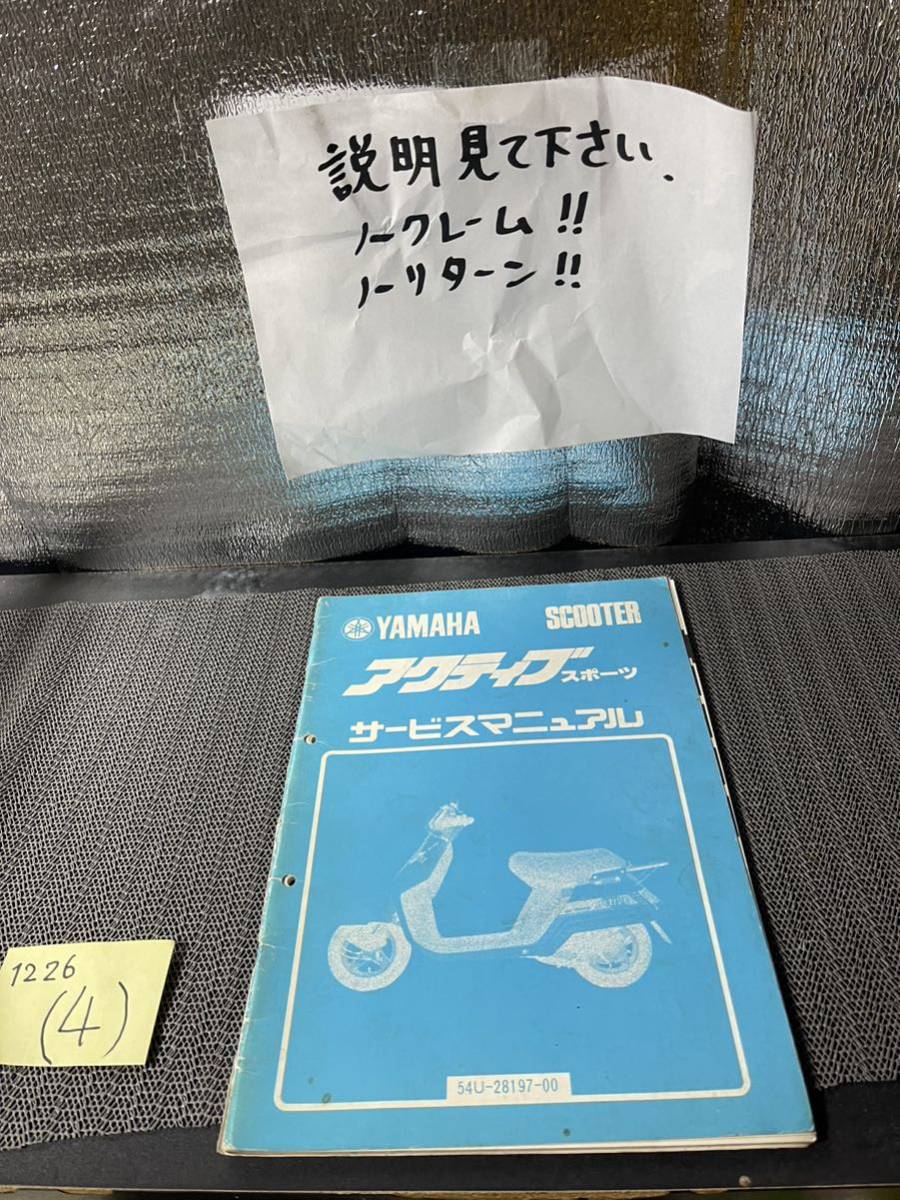 説明見て下さい、
ノークレーム!!
ノーリターン!!
YAMAHA SCOOTER
アクティブ スポーツ
サービスマニュアル
54U-28197-00
1226
(4)